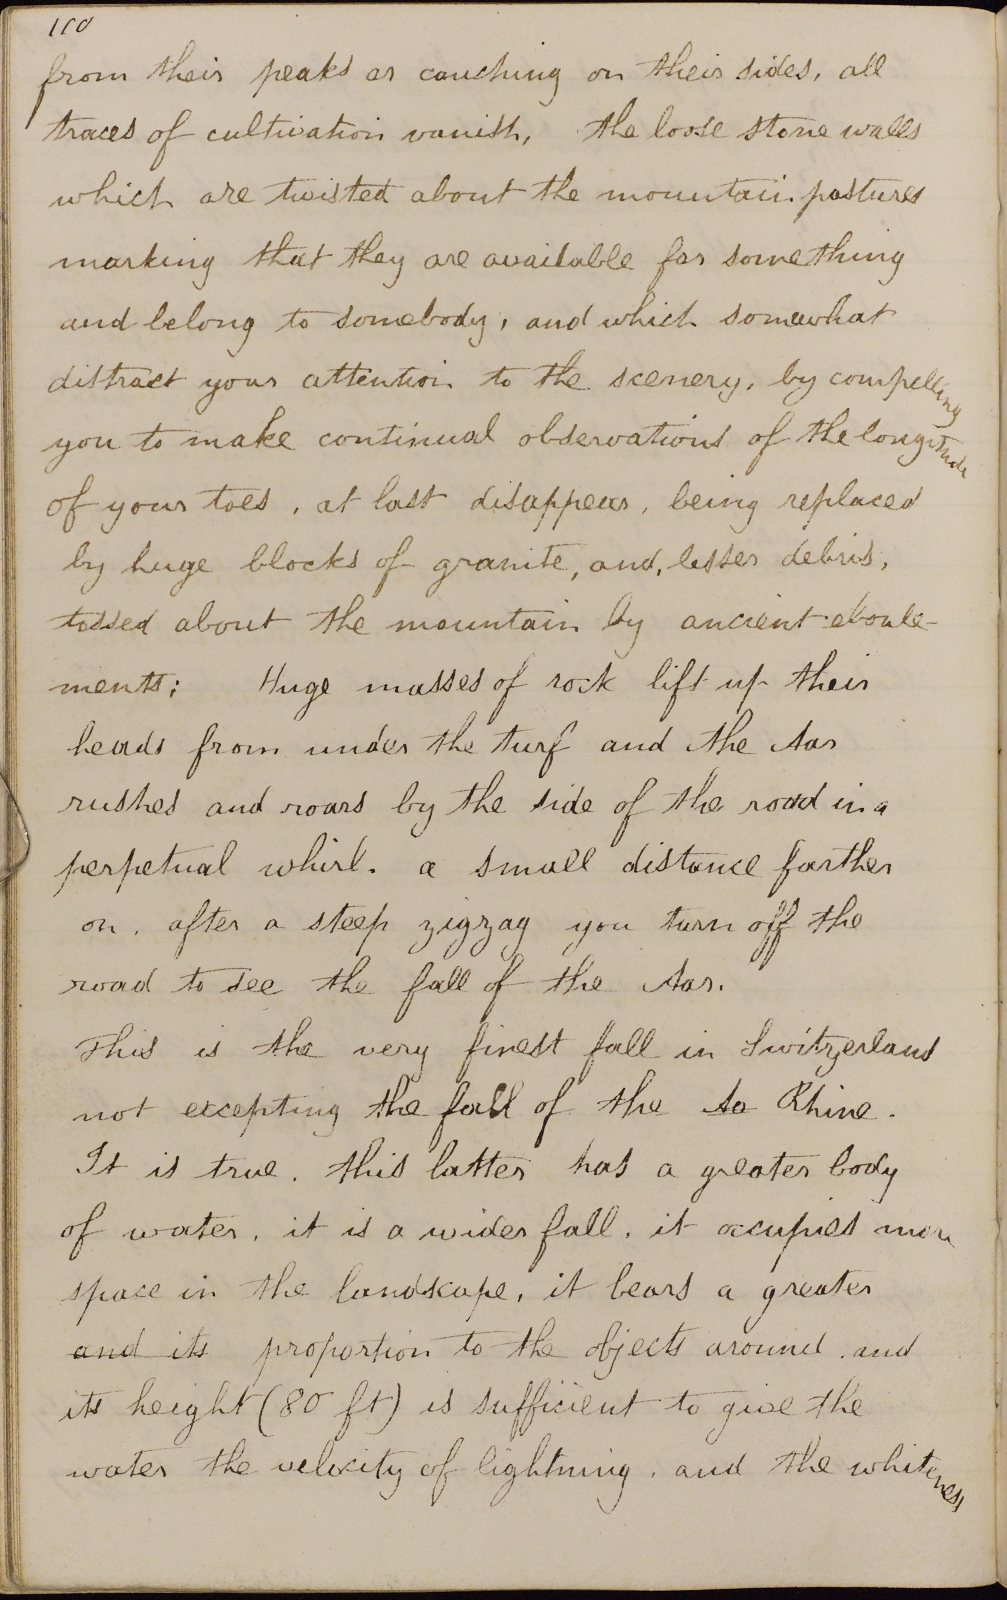 110
from their peaks as couching on their sides, all
traces of cultivation vanish, the loose stone walls
which are twisted about the mountain pastures
marking that they are available for something
and belong to somebody, and which somewhat
distract your attention to the scenery, by compelling
you to make continual observations of the longitude
of your toes, at last disappear, being replaced
by huge blocks of granite, and, lesser debris,
tossed about the mountain by ancient eboule-
ments; Huge masses of rock lift up their
heads from under the turf and the Aar
rushes and roars by the side of the road in a
perpetual whirl. a small distance farther
on, after a steep zigzag you turn off the
road to see the fall of the Aar.
This is the very finest fall in Switzerland
not excepting the fall of the Aa Rhine.
It is true, this latter has a greater body
of water, it is a wider fall, it occupies more
space in the landscape, it bears a greater
and its proportion to the objects around, and
its height (80 ft) is sufficient to give the
water the velocity of lightning, and the whiteness